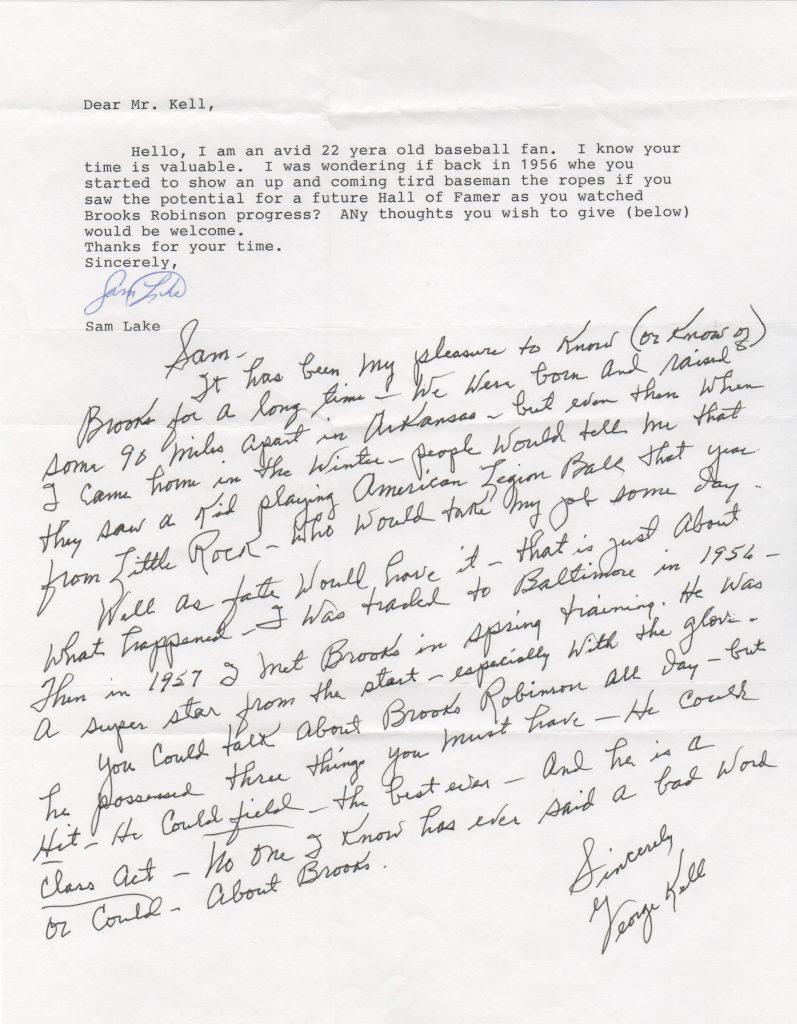 Dear Mr. Kell,
Hello, I am an avid 22 yera old baseball fan. I know your
time is valuable. I was wondering if back in 1956 whe you
started to show an up and coming tird baseman the ropes if you
saw the potential for a future Hall of Famer as you watched
Brooks Robinson progress? ANy thoughts you wish to give (below)
would be welcome.
Thanks for your time.
Sincerely,
Sam Lake
Sam Lake
Sam-
It has been my pleasure to know (or know of)
Brooks for a long time - We were born and raised
some 90 miles apart in Arkansas - but even then when
I came home in the winter - people would tell me that
they saw a kid playing American Legion Ball that year
from Little Rock - who would take my job some day.
Well as fate would have it - that is just about
what happened - I was traded to Baltimore in 1956 -
Then in 1957 I met Brooks in spring training. He was
a super star from the start - especially with the glove.
You could talk about Brooks Robinson all day - but
he possessed three things you must have - He could
Hit - He could field - the best ever - And he is a
class act - No one I know has ever said a bad word
or could - about Brooks.
Sincerely
George Kell